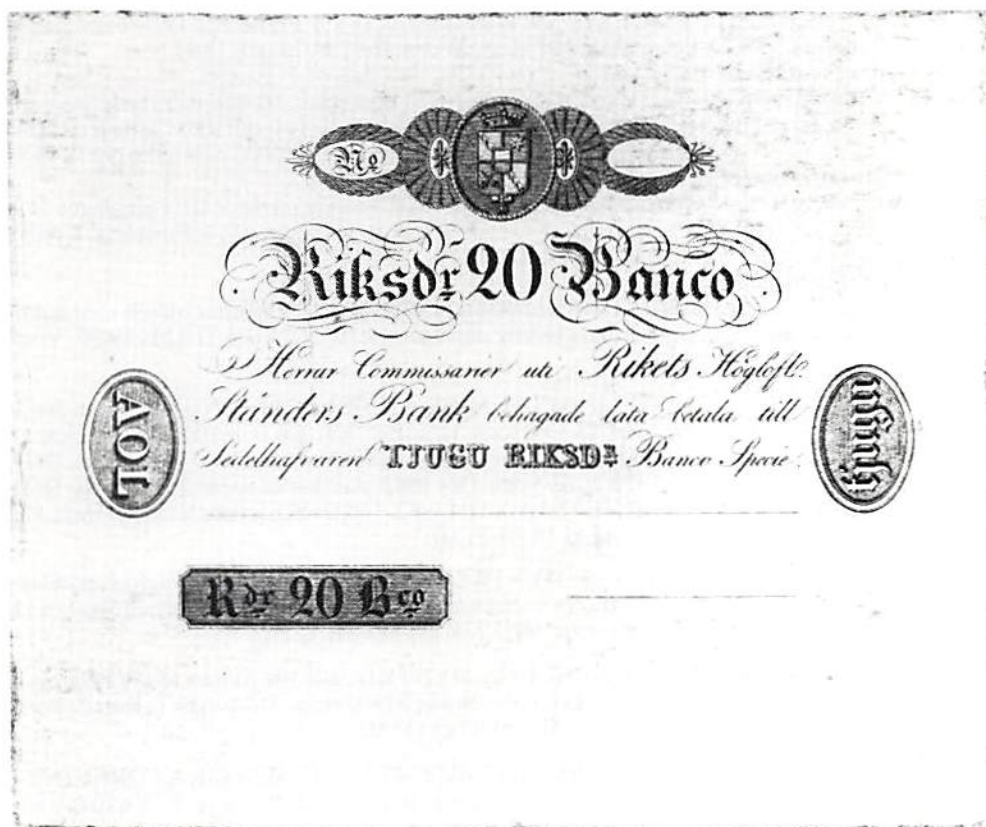 No
Riksdr 20 Banco
Herrar Commissarier uti Rikets Höglofl.
Ständers Bank behagade låta betala till
Sedelhafvaren TJUGU RIKSDR Banco Specie.
AOL
tjugu
Rdr 20 Bco